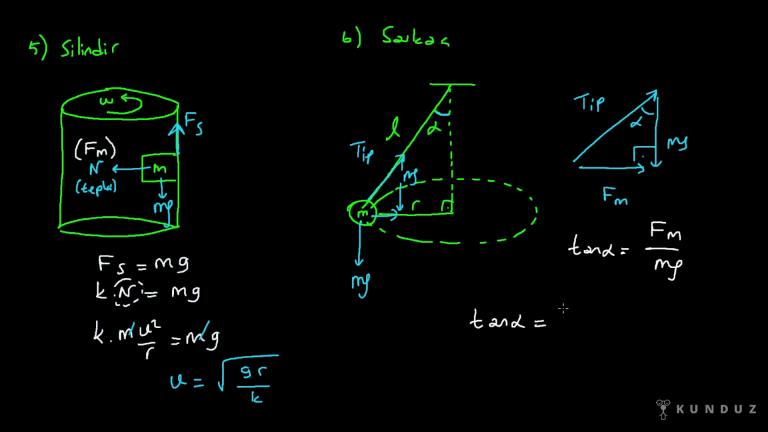 5) Silindir
ω
Fs
(Fm)
N
(tepki)
m
mg
Fs = mg
k.N = mg
k.m u²/r = mg
u = √(gr/k)
6) Sarkaç
l
α
Tip
mg
r
m
mg
Tip
α
mg
Fm
tanα = Fm/mg
tanα =
KUNDUZ